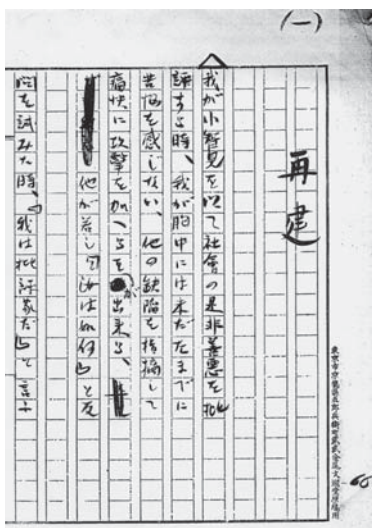 (一)
再建
我が小智見を以て社會の是非善悪を批
評する時、我が胸中には未だたまでに
苦悩を感じない、他の缺陥を指摘して
痛快に攻撃を加へるを出来る、
他が若し「汝は如何」と反
問を試みた時、「我は批評家だ」と言ふ